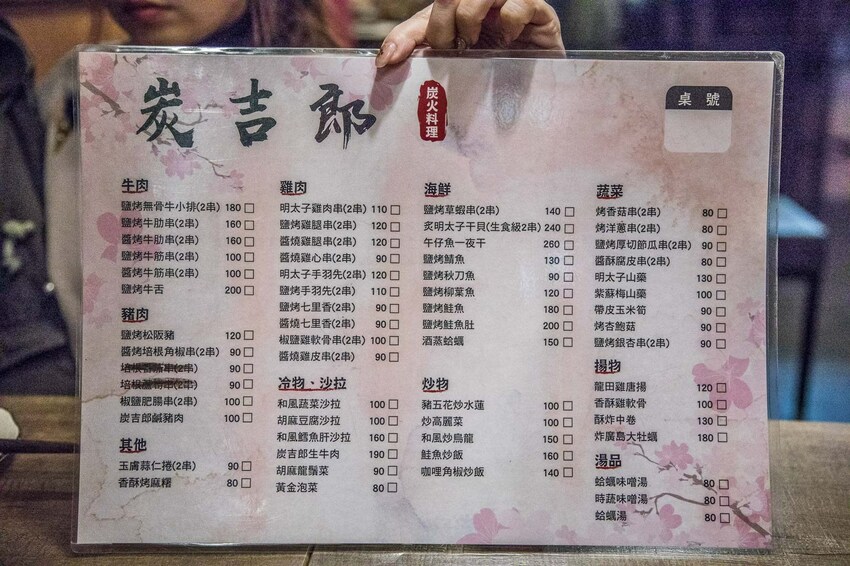 炭吉郎
炭火料理
桌號
牛肉
鹽烤無骨牛小排(2串) 180
鹽烤牛肋串(2串) 160
醬烤牛肋串(2串) 160
鹽烤牛筋串(2串) 100
醬烤牛筋串(2串) 100
鹽烤牛舌 200
豬肉
鹽烤松阪豬 120
醬烤培根角椒串(2串) 90
培根 串(2串) 90
培根 串(2串) 90
椒鹽肥腸串(2串) 90
炭吉郎鹹豬肉 100
其他
玉膚蒜仁捲(2串) 90
香酥烤麻糬 80
雞肉
明太子雞肉串(2串) 110
鹽烤雞腿串(2串) 120
醬燒雞腿串(2串) 120
醬燒雞心串(2串) 90
明太子手羽先(2串) 120
鹽烤手羽先(2串) 110
鹽烤七里香(2串) 90
醬燒七里香(2串) 90
椒鹽雞軟骨串(2串) 100
醬燒雞皮串(2串) 90
冷物、沙拉
和風蔬菜沙拉 100
胡麻豆腐沙拉 100
和風鱈魚肝沙拉 160
炭吉郎生牛肉 190
胡麻龍鬚菜 90
黃金泡菜 80
海鮮
鹽烤草蝦串(2串) 140
炙明太子干貝(生食級2串) 240
午仔魚一夜干 260
鹽烤鯖魚 130
鹽烤秋刀魚 90
鹽烤柳葉魚 120
鹽烤鮭魚 180
鹽烤鮭魚肚 200
酒蒸蛤蠣 150
炒物
豬五花炒水蓮 100
炒高麗菜 100
和風炒烏龍 150
鮭魚炒飯 160
咖哩角椒炒飯 140
蔬菜
烤香菇串(2串) 80
烤洋蔥串(2串) 80
鹽烤厚切節瓜串(2串) 90
醬酥腐皮串(2串) 80
明太子山藥 130
紫蘇梅山藥 100
帶皮玉米筍 90
烤杏鮑菇 90
鹽烤銀杏串(2串) 90
揚物
龍田雞唐揚 120
香酥雞軟骨 100
酥炸中卷 130
炸廣島大牡蠣 180
湯品
蛤蠣味噌湯 80
時蔬味噌湯 80
蛤蠣湯 80